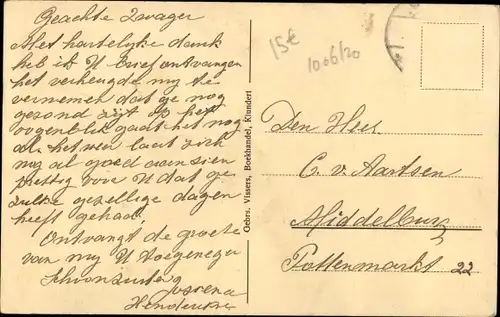 Geachte Zwager
Met hartelyke dank
heb ik U brief ontvangen
het verheugde my te
vernemen dat ge nog
gezond zijt op het
oogenblik gaat het nog
al. het weer laat zich
nog al goed aanzien
prettig voor U dat ge
zulke gezellige dagen
heeft gehad.
Ontvangt de groete
van my U toegenegen
Schoonzuster
15€
1006/20
Gebrs. Vissers, Boekhandel, Klundert
Den Heer
C. v. Aartsen
Middelburg
Pottenmarkt 22